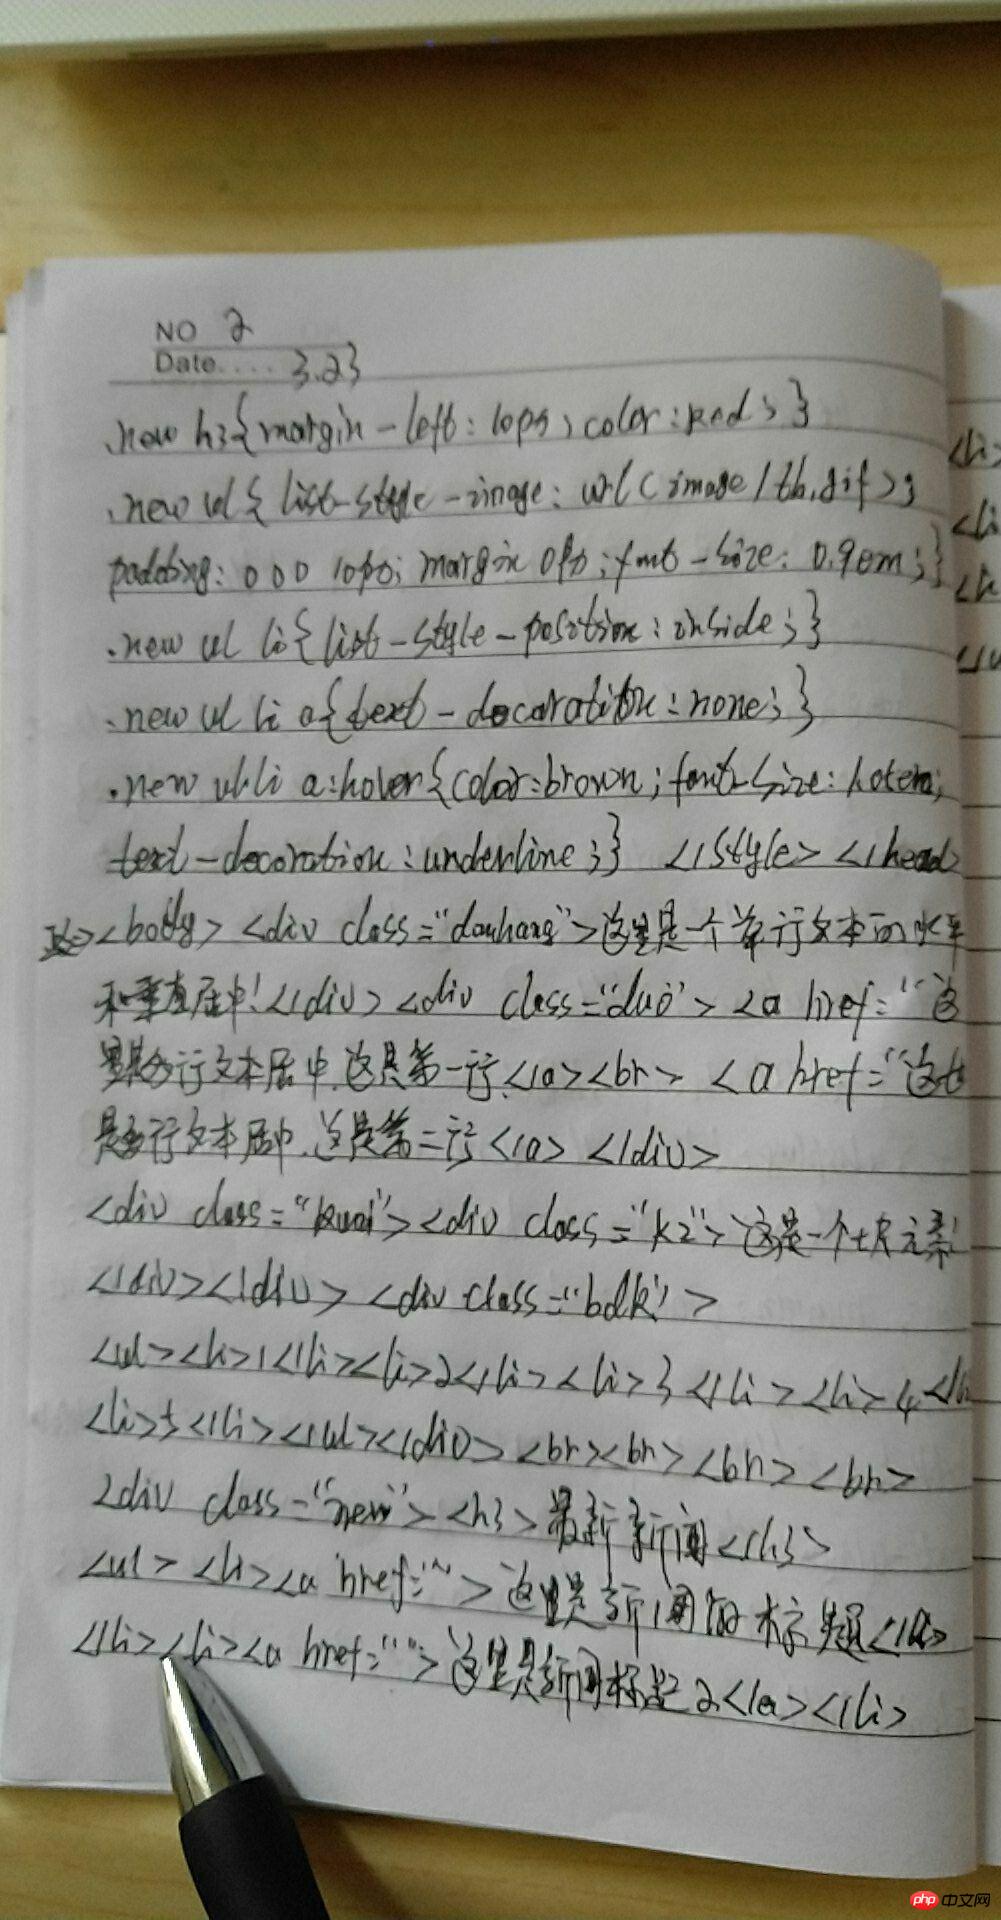 NO 2
Date.... 3.23
.new h3{margin-left:10px;color:red;}
.new ul{list-style-image:url(image/tb.gif);
padding:0 0 0 10px;margin 0px;font-size:0.9em;}
.new ul li{list-style-position:inside;}
.new ul li a{text-decoration:none;}
.new ul li a:hover{color:brown;font-size:
text-decoration:underline;}  </style></head
><body><div class="danhang">这里是一个单行文本的水平
和垂直居中!</div><div class="duo"><a href="这
里是多行文本居中,这是第一行</a><br> <a href="这也
是多行文本居中,这是第二行</a></div>
<div class="kuai"><div class="k2">这是一个块元素!
</div></div><div class="bdk">
<ul><li>1</li><li>2</li><li>3</li><li>4</li
<li>5</li></ul></div><br><br><br><br>
<div class="new"><h3>最新新闻</h3>
<ul><li><a href="">这里是新闻的标题</a>
</li><li><a href="">这里是新闻标题2</a></li>
<li>
<li
<li
</u
php 中文网